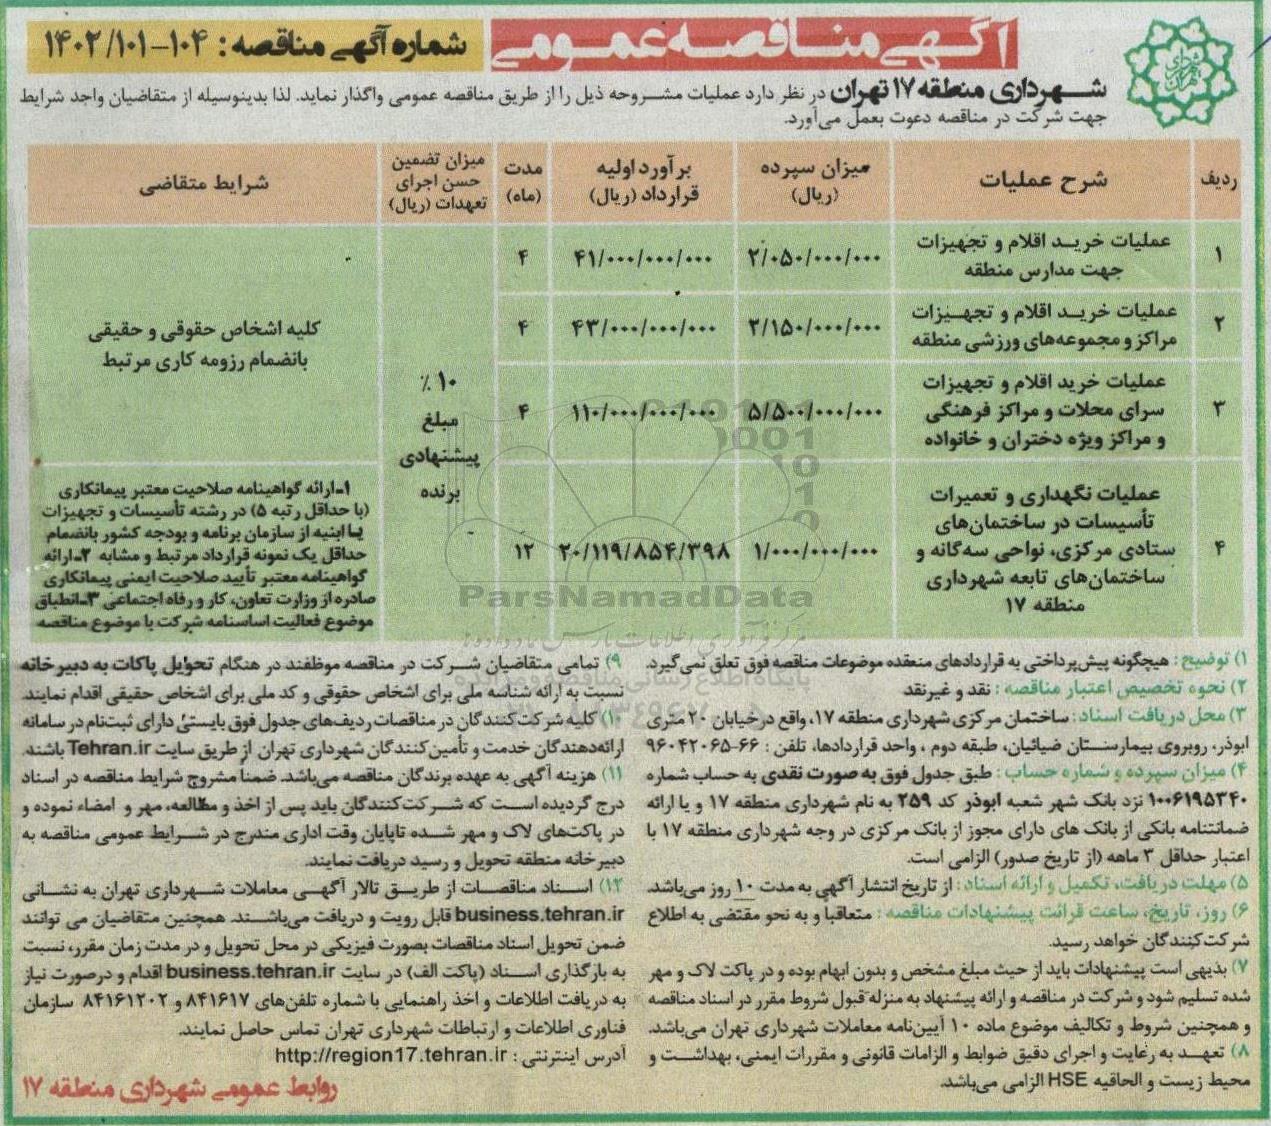 آگهی مناقصه عمومی
شماره آگهی مناقصه: ۱۰۴-۱۴۰۲/۱۰۱
شهرداری منطقه ۱۷ تهران در نظر دارد عملیات مشروحه ذیل را از طریق مناقصه عمومی واگذار نماید. لذا بدینوسیله از متقاضیان واجد شرایط
جهت شرکت در مناقصه دعوت بعمل می‌آورد.
ردیف | شرح عملیات | میزان سپرده (ریال) | برآورد اولیه قرارداد (ریال) | مدت (ماه) | میزان تضمین حسن اجرای تعهدات (ریال) | شرایط متقاضی
۱ | عملیات خرید اقلام و تجهیزات
جهت مدارس منطقه | ۲/۰۵۰/۰۰۰/۰۰۰ | ۴۱/۰۰۰/۰۰۰/۰۰۰ | ۴
۲ | عملیات خرید اقلام و تجهیزات
مراکز و مجموعه‌های ورزشی منطقه | ۲/۱۵۰/۰۰۰/۰۰۰ | ۴۳/۰۰۰/۰۰۰/۰۰۰ | ۴
۳ | عملیات خرید اقلام و تجهیزات
سرای محلات و مراکز فرهنگی
و مراکز ویژه دختران و خانواده | ۵/۵۰۰/۰۰۰/۰۰۰ | ۱۱۰/۰۰۰/۰۰۰/۰۰۰ | ۴
۴ | عملیات نگهداری و تعمیرات
تأسیسات در ساختمان‌های
ستادی مرکزی، نواحی سه‌گانه و
ساختمان‌های تابعه شهرداری
منطقه ۱۷ | ۱/۰۰۰/۰۰۰/۰۰۰ | ۲۰/۱۱۹/۸۵۴/۳۹۸ | ۱۲
۱۰٪
مبلغ
پیشنهادی
برنده
کلیه اشخاص حقوقی و حقیقی
بانضمام رزومه کاری مرتبط
۱ـ ارائه گواهینامه صلاحیت معتبر پیمانکاری
(با حداقل رتبه ۵) در رشته تأسیسات و تجهیزات
یا ابنیه از سازمان برنامه و بودجه کشور بانضمام
حداقل یک نمونه قرارداد مرتبط و مشابه ۲ـ ارائه
گواهینامه معتبر تأیید صلاحیت ایمنی پیمانکاری
صادره از وزارت تعاون، کار و رفاه اجتماعی ۳ـ انطباق
موضوع فعالیت اساسنامه شرکت با موضوع مناقصه
ParsNamadData
مرکز فرآوری اطلاعات پارس نماد داده‌ها
پایگاه اطلاع رسانی مناقصه و مزایده
۱) توضیح: هیچگونه پیش‌پرداختی به قراردادهای منعقده موضوعات مناقصه فوق تعلق نمی‌گیرد.
۲) نحوه تخصیص اعتبار مناقصه: نقد و غیرنقد
۳) محل دریافت اسناد: ساختمان مرکزی شهرداری منطقه ۱۷، واقع در خیابان ۲۰ متری
ابوذر، روبروی بیمارستان ضیائیان، طبقه دوم، واحد قراردادها، تلفن: ۶۶-۹۶۰۴۲۰۶۵
۴) میزان سپرده و شماره حساب: طبق جدول فوق به صورت نقدی به حساب شماره
۱۰۰۶۱۹۵۳۴۰ نزد بانک شهر شعبه ابوذر کد ۲۵۹ به نام شهرداری منطقه ۱۷ و یا ارائه
ضمانتنامه بانکی از بانک های دارای مجوز از بانک مرکزی در وجه شهرداری منطقه ۱۷ با
اعتبار حداقل ۳ ماهه (از تاریخ صدور) الزامی است.
۵) مهلت دریافت، تکمیل و ارائه اسناد: از تاریخ انتشار آگهی به مدت ۱۰ روز می‌باشد.
۶) روز، تاریخ، ساعت قرائت پیشنهادات مناقصه: متعاقباً و به نحو مقتضی به اطلاع
شرکت‌کنندگان خواهد رسید.
۷) بدیهی است پیشنهادات باید از حیث مبلغ مشخص و بدون ابهام بوده و در پاکت لاک و مهر
شده تسلیم شود و شرکت در مناقصه و ارائه پیشنهاد به منزله قبول شروط مقرر در اسناد مناقصه
و همچنین شروط و تکالیف موضوع ماده ۱۰ آیین‌نامه معاملات شهرداری تهران می‌باشد.
۸) تعهد به رعایت و اجرای دقیق ضوابط و الزامات قانونی و مقررات ایمنی، بهداشت و
محیط زیست و الحاقیه HSE الزامی می‌باشد.
۹) تمامی متقاضیان شرکت در مناقصه موظفند در هنگام تحویل پاکات به دبیرخانه
نسبت به ارائه شناسه ملی برای اشخاص حقوقی و کد ملی برای اشخاص حقیقی اقدام نمایند.
۱۰) کلیه شرکت‌کنندگان در مناقصات ردیف‌های جدول فوق بایستی دارای ثبت‌نام در سامانه
ارائه‌دهندگان خدمت و تأمین‌کنندگان شهرداری تهران از طریق سایت Tehran.ir باشند.
۱۱) هزینه آگهی به عهده برندگان مناقصه می‌باشد. ضمناً مشروح شرایط مناقصه در اسناد
درج گردیده است که شرکت‌کنندگان باید پس از اخذ و مطالعه، مهر و امضاء نموده و
در پاکت‌های لاک و مهر شده تا پایان وقت اداری مندرج در شرایط عمومی مناقصه به
دبیرخانه منطقه تحویل و رسید دریافت نمایند.
۱۲) اسناد مناقصات از طریق تالار آگهی معاملات شهرداری تهران به نشانی
business.tehran.ir قابل رویت و دریافت می‌باشند. همچنین متقاضیان می توانند
ضمن تحویل اسناد مناقصات بصورت فیزیکی در محل تحویل و در مدت زمان مقرر، نسبت
به بارگذاری اسناد (پاکت الف) در سایت business.tehran.ir اقدام و درصورت نیاز
به دریافت اطلاعات و اخذ راهنمایی با شماره تلفن‌های ۸۴۱۶۱۷ و ۸۴۱۶۱۲۰۲ سازمان
فناوری اطلاعات و ارتباطات شهرداری تهران تماس حاصل نمایند.
آدرس اینترنتی: http://region17.tehran.ir
روابط عمومی شهرداری منطقه ۱۷